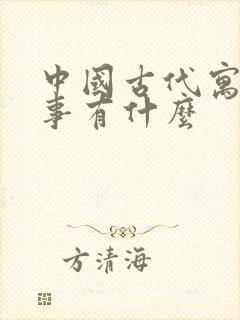 中國古代寓
事有什麼
方清海